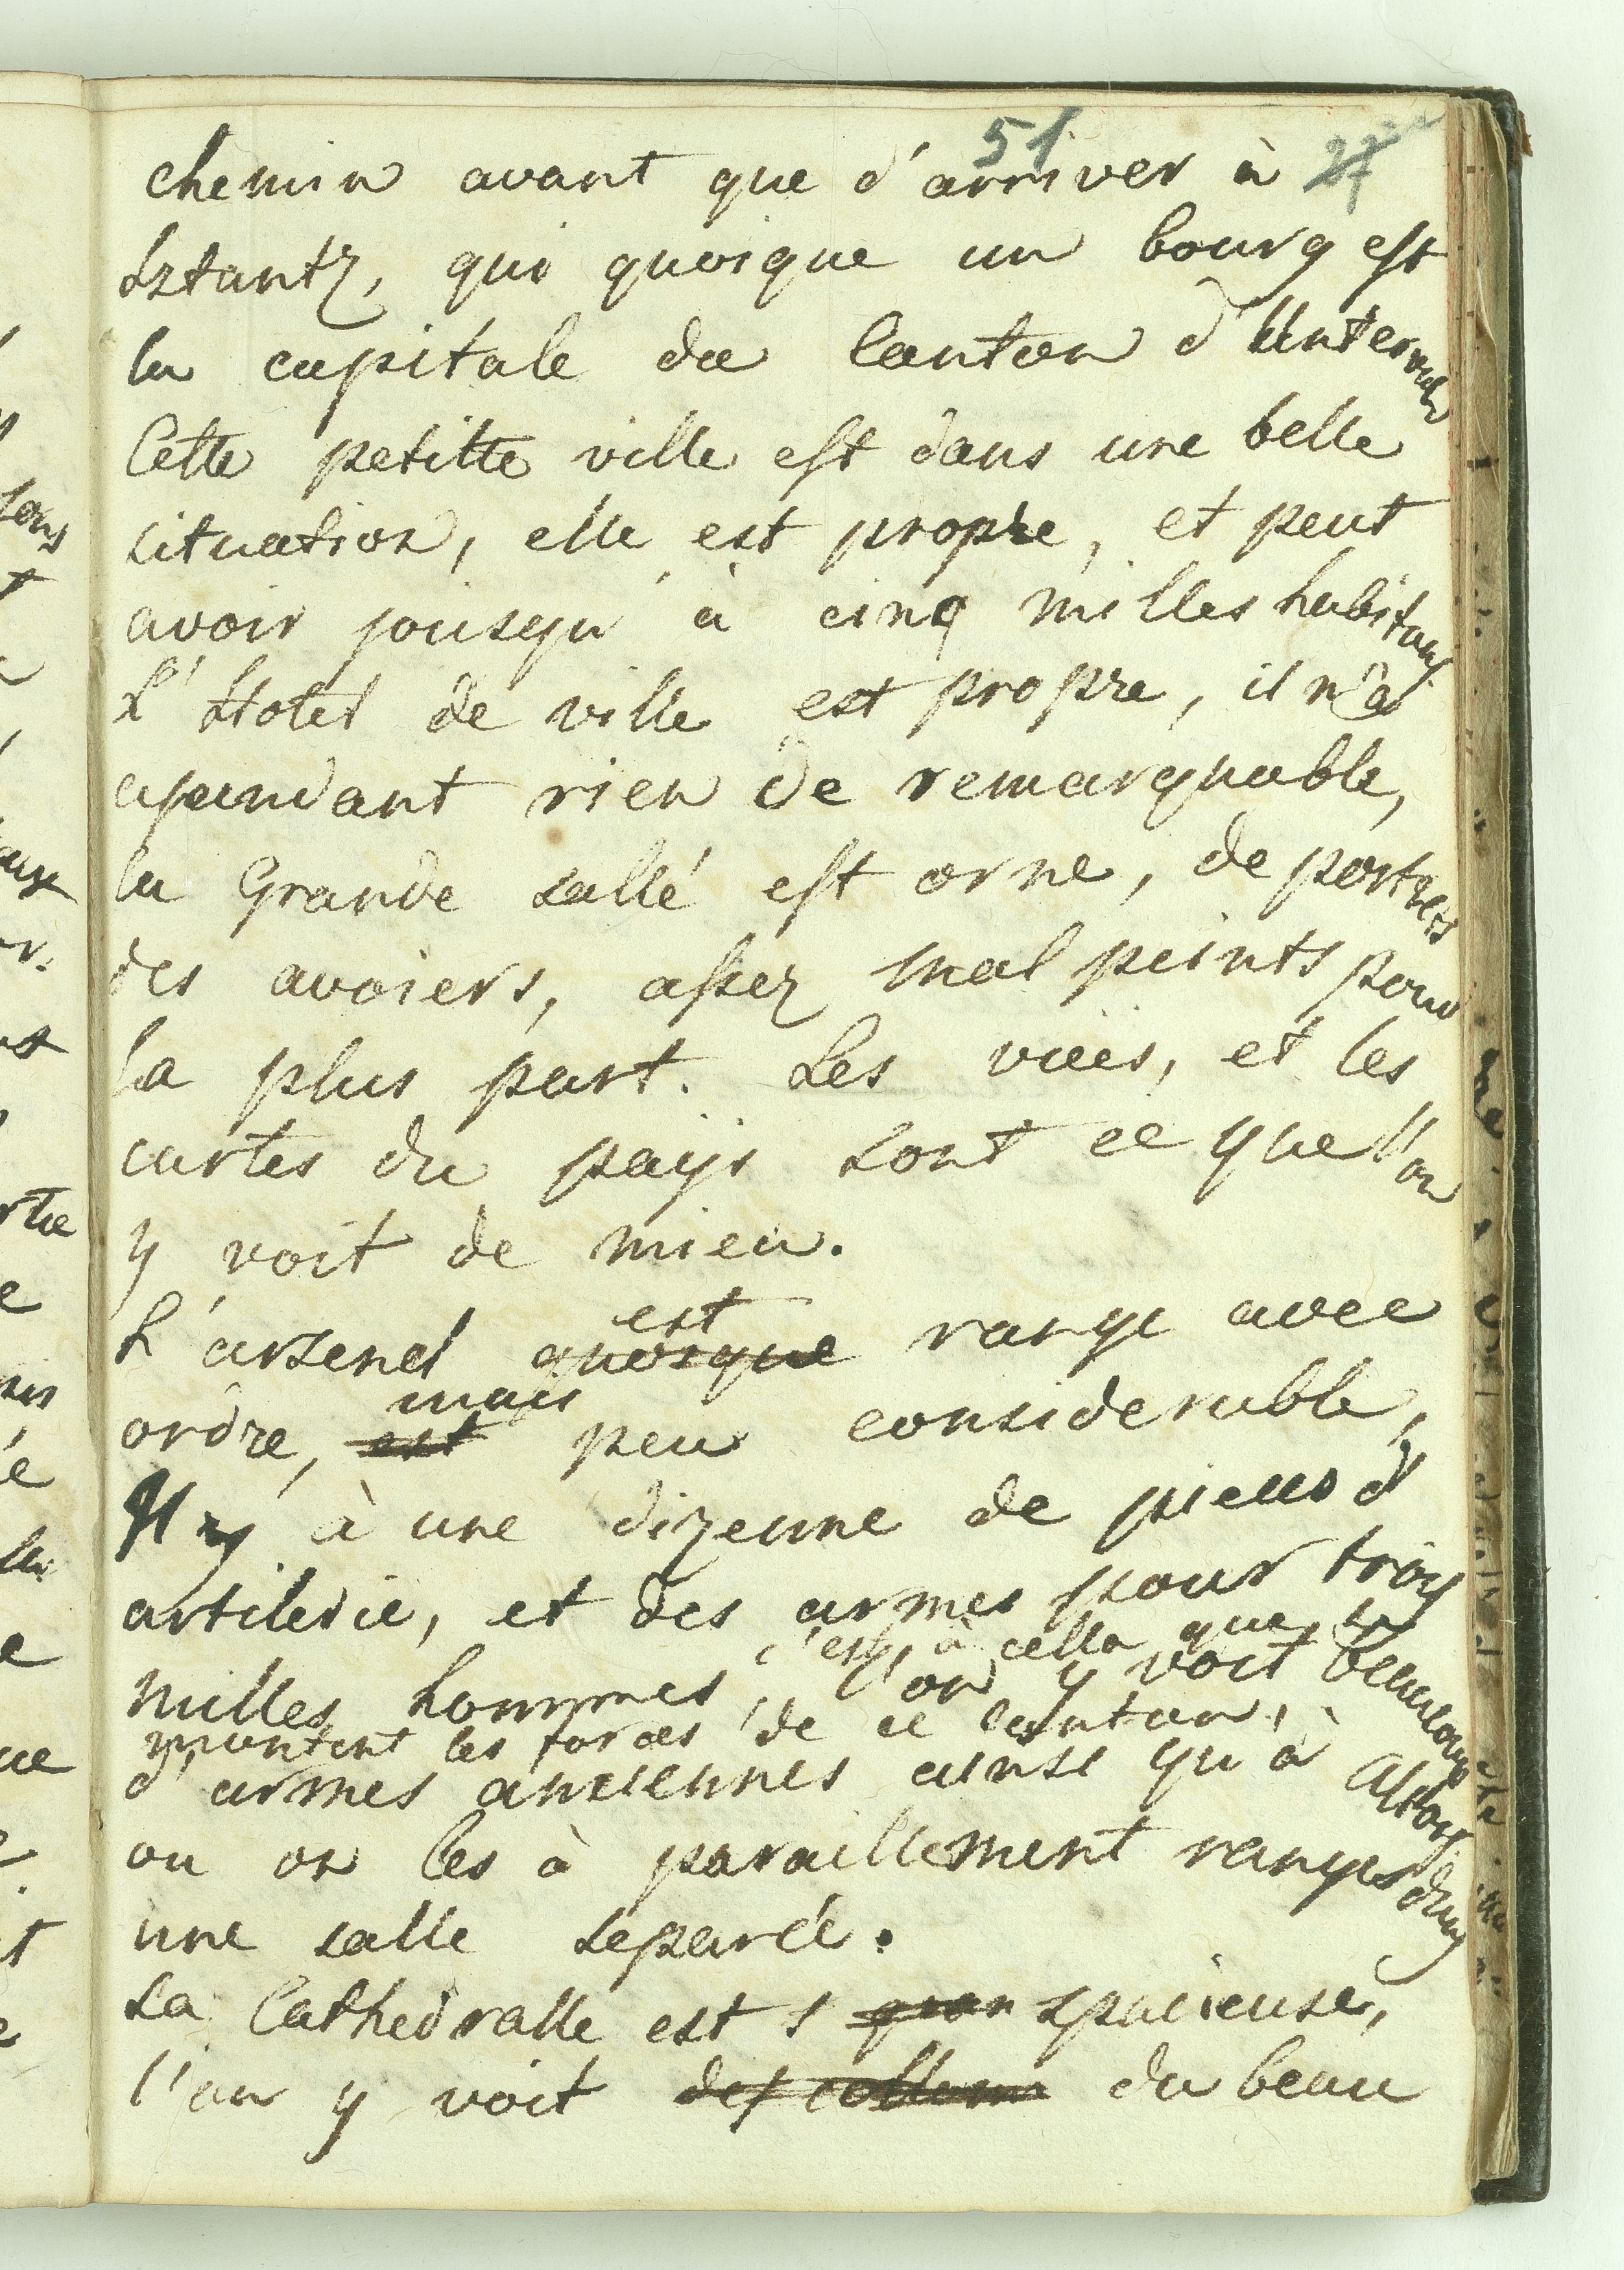 51 27
chemin avant que d'arriver à
Sztantz, qui quoique un bourg est
la capitale du Canton d'Unterwald
Cette petitte ville est dans une belle
situation, elle est propre, et peut
avoir jousqu'à cinq milles habitans
L'Hotel de ville est propre, il n'a
cependant rien de remarquable,
la Grande sallé est orne, de portrets
des avoiers, assez mal peints pour
la plus part. Les vuës, et les
cartes du pays sont ce que l'on
y voit de mieu.
L'arsenel quoique est range avec
ordre, est mais peu considerable,
Il y à une dizenne de pieces d'
artilerie, et des armes pour trois
milles hommes, c'est à cella que se
montent les forces de ce canton,
l'on y voit beaucoup
d'armes anciennes ainsi qu'à Altorf
ou on les à paraillement ranges dans
une salle separée.
La Cathedralle est s gran spacieuse,
l'on y voit des collonn du beau